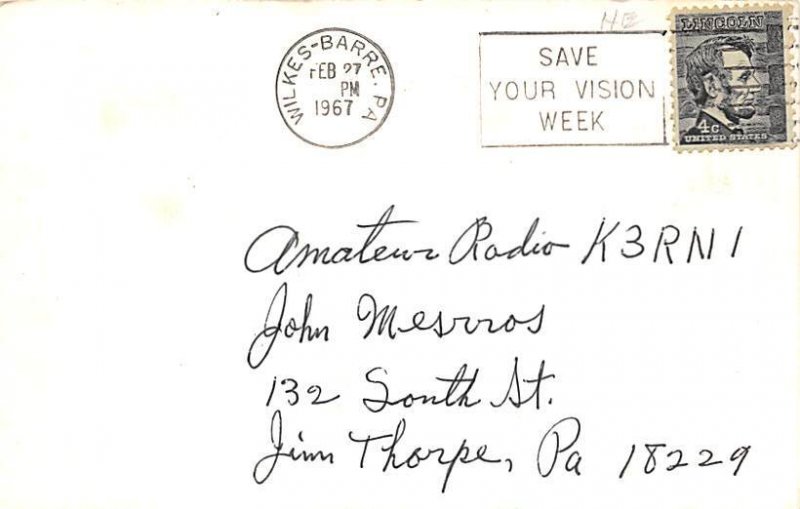 HE
WILKES-BARRE, PA
FEB 27
PM
1967
SAVE
YOUR VISION
WEEK
LINCOLN
4c
UNITED STATES
Amateur Radio K3RNI
John Mesrros
132 South St.
Jim Thorpe, Pa 18229